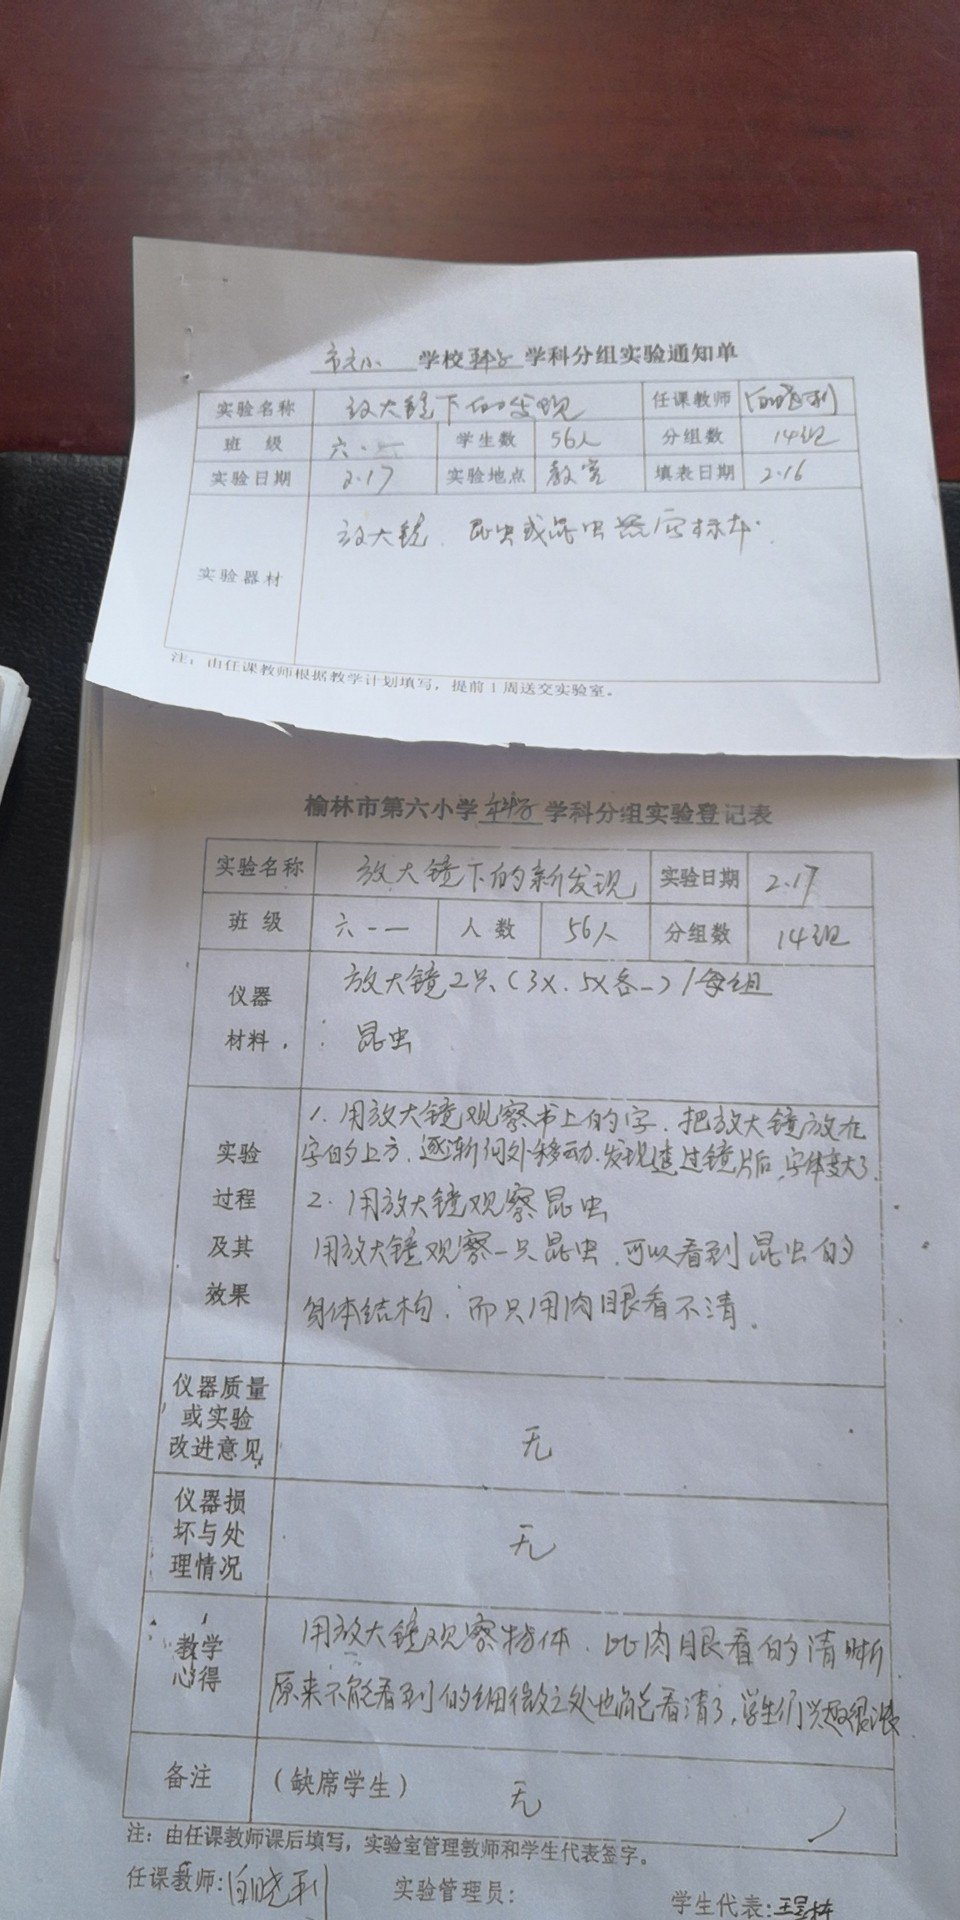 市六小 学校科学学科分组实验通知单
实验名称 放大镜下的发现 任课教师 白晓利
班 级 六· 学生数 56人 分组数 14组
实验日期 2.17 实验地点 教室 填表日期 2.16
实验器材 放大镜、昆虫或昆虫器官标本.
注：由任课教师根据教学计划填写，提前1周送交实验室。
榆林市第六小学科学学科分组实验登记表
实验名称 放大镜下的新发现 实验日期 2.17
班 级 六·一 人 数 56人 分组数 14组
仪器 放大镜2只(3X.5X各一)/每组
材料 昆虫
1. 用放大镜观察书上的字. 把放大镜放在
实验 字的上方.逐渐向外移动.发现透过镜片后,字体变大了.
过程 2. 用放大镜观察昆虫
及其 用放大镜观察一只昆虫.可以看到昆虫的
效果 身体结构.而只用肉眼看不清.
仪器质量
或实验
改进意见 无
仪器损
坏与处 无
理情况
教学 用放大镜观察物体.比肉眼看的清晰.
心得 原来不能看到的细微之处也能看清了,学生们兴趣很浓.
备注 (缺席学生) 无
注：由任课教师课后填写，实验室管理教师和学生代表签字。
任课教师:白晓利 实验管理员: 学生代表: